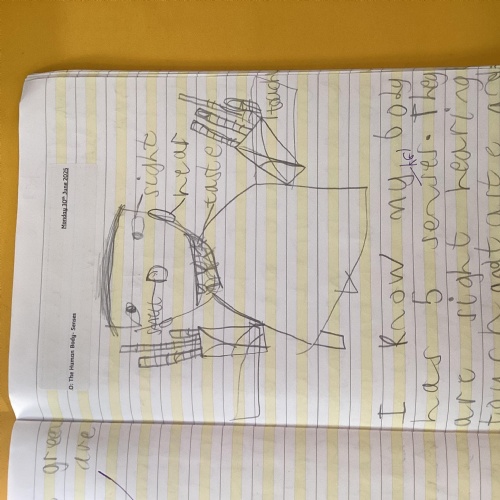 Monday 30th June 2025
D: The Human Body- Senses
sight
hear
smell
taste
touch
I know my body
has 5 senses. They
are sight hearing
touch
green
are